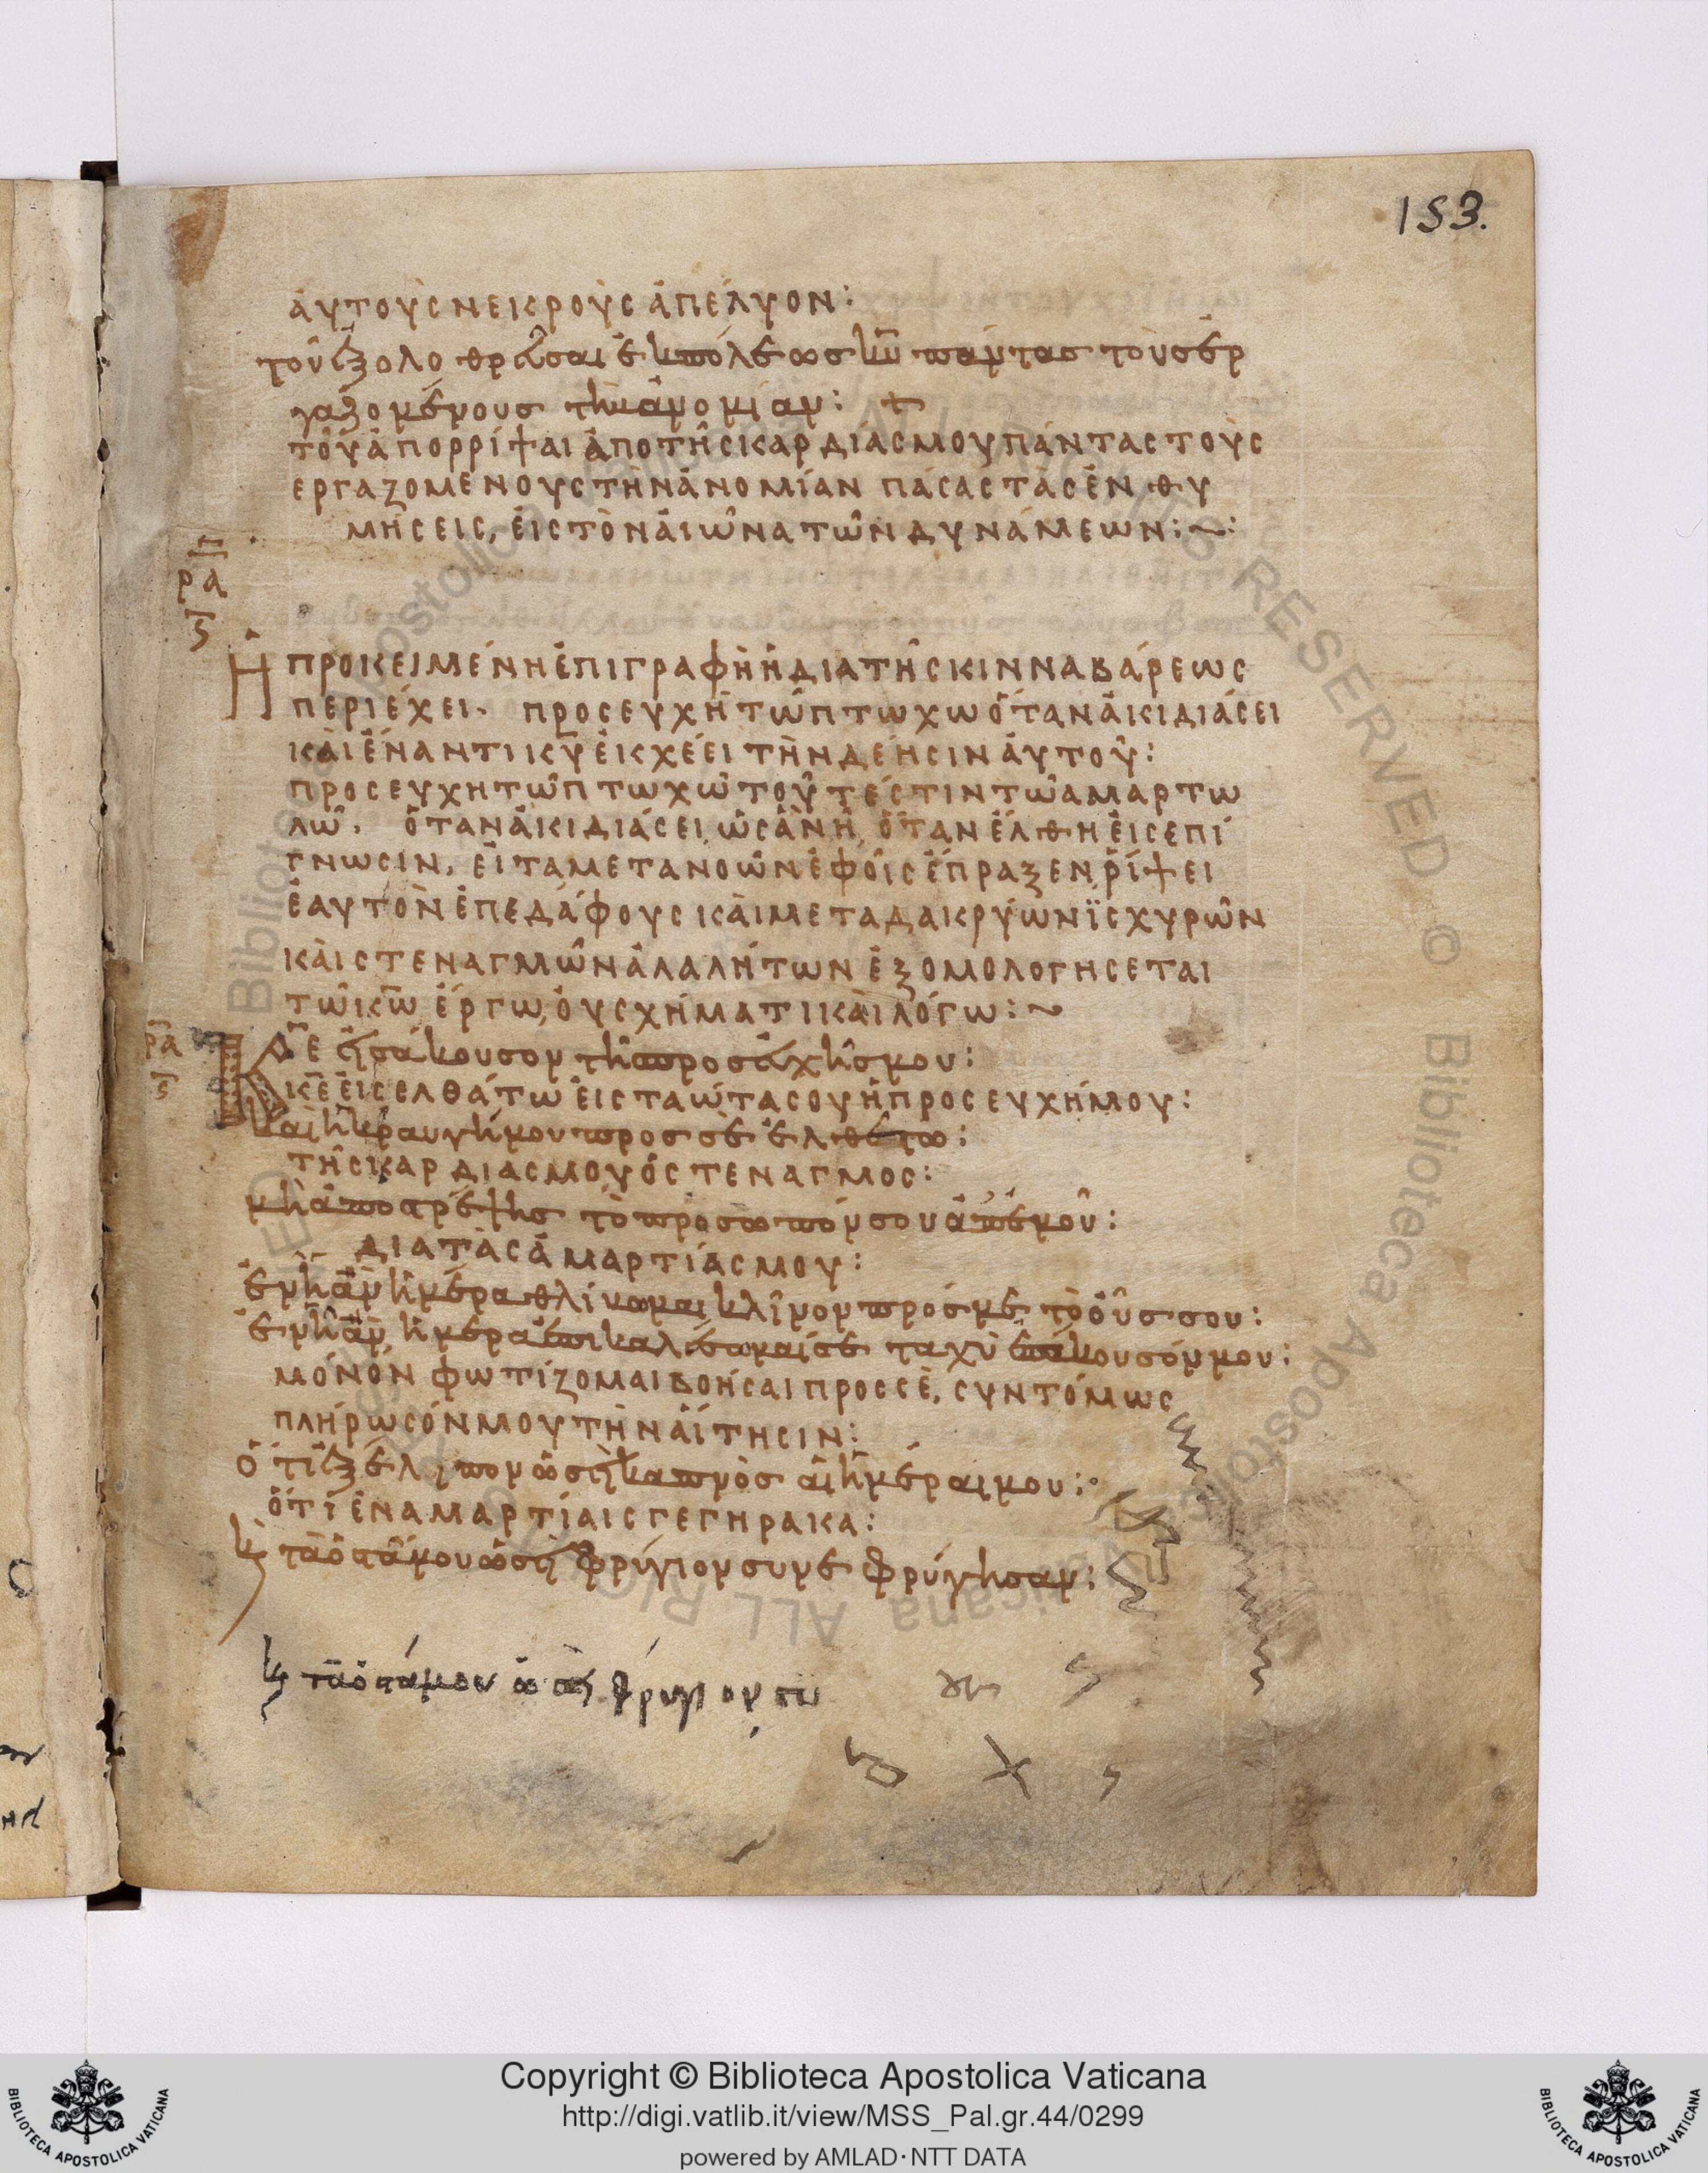 153.
ἀυτοὺς νεκροὺς ἀπέλυον:
τοῦ ἐξολοθρεῦσαι ἐκ πόλεως κυ πάντας τοὺς ἐρ
γαζομένους τὴν ἀνομίαν:
τοῦ ἀπορρίψαι ἀπο τῆς καρδίας μου πάντας τοὺς
εργαζομένους τὴν ἀνομίαν πάσας τὰς ἐνθυ
μήσεις, ἐις τὸν ἀιῶνα τῶν δυνάμεων:~:
ρα
ς
Ἡ προκειμένη ἐπιγραφὴ ἡ διὰ τῆς κινναβάρεως
περιέχει. προσευχὴ τῶ πτωχῶ ὅταν ἀκιδιάσει
καὶ ἐναντι κυ ἐκχέει τὴν δέησιν ἀυτοῦ:
προσευχη τῶ πτωχῶ τοῦτέστιν τῶ αμαρτω
λῶ. ὅταν ἀκιδιάσει, ὡς ἂν ῆ, ὅταν ἔλθη ἐις επί
γνωσιν, εἶτα μετανοῶν ἐφ οῖς ἔπραξεν ῥίψει
ἑαυτὸν ἐπ εδάφους καὶ μετα δακρύων ϊσχυρῶν
καὶ στεναγμῶν ἀλαλήτων ἐξομολογησεται
τῶ κω ἔργω, ὀυ σχήματι καὶ λόγω:~
ρα
ς
Κε ἐισάκουσον τῆς προσευχῆς μου:
κε ἐισελθάτω ἐις τα ὦτα σου ἡ προσευχή μου:
καὶ ἡ κραυγή μου προς σὲ ἐλθέτω:
τῆς καρδιας μου ὁ στεναγμος:
μὴ ἀποστρέψης τὸ προσωπόν σου ἀπ ἐμοῦ:
δια τὰς ἁμαρτίας μου:
ἐν ῆ ἂν ἡμέρα θλίβωμαι κλῖνον πρός με τὸ οῦς σου:
ἐν ῆ ἂν ἡμέρα ἐπικαλέσωμαί σε ταχὺ ἐπάκουσόν μου:
μόνον φωτίζομαι βοῆσαι προς σὲ, συντόμως
πλήρωσόν μου τὴν ἀίτησιν:
ὅτι ἐξέλιπον ὡσεὶ καπνὸς ἁι ἡμέραι μου:
ὅτι ἐν αμαρτίαις γεγηρακα:
κ τὰ ὀστᾶ μου ὡσεὶ φρύγιον συνεφρύγησαν:
κ τὰ ὀστά μου ὡσεὶ φρύγιον συ
Copyright © Biblioteca Apostolica Vaticana
http://digi.vatlib.it/view/MSS_Pal.gr.44/0299
powered by AMLAD·NTT DATA
BIBLIOTECA APOSTOLICA VATICANA
BIBLIOTECA APOSTOLICA VATICANA